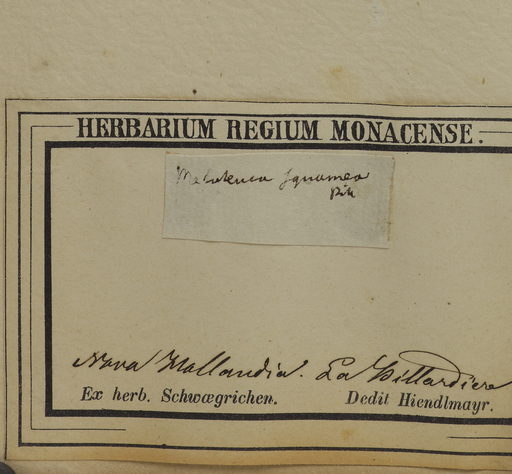 HERBARIUM REGIUM MONACENSE.
Melaleuca squamea
Nova Hollandia. La Billardiere
Ex herb. Schwœgrichen. Dedit Hiendlmayr.